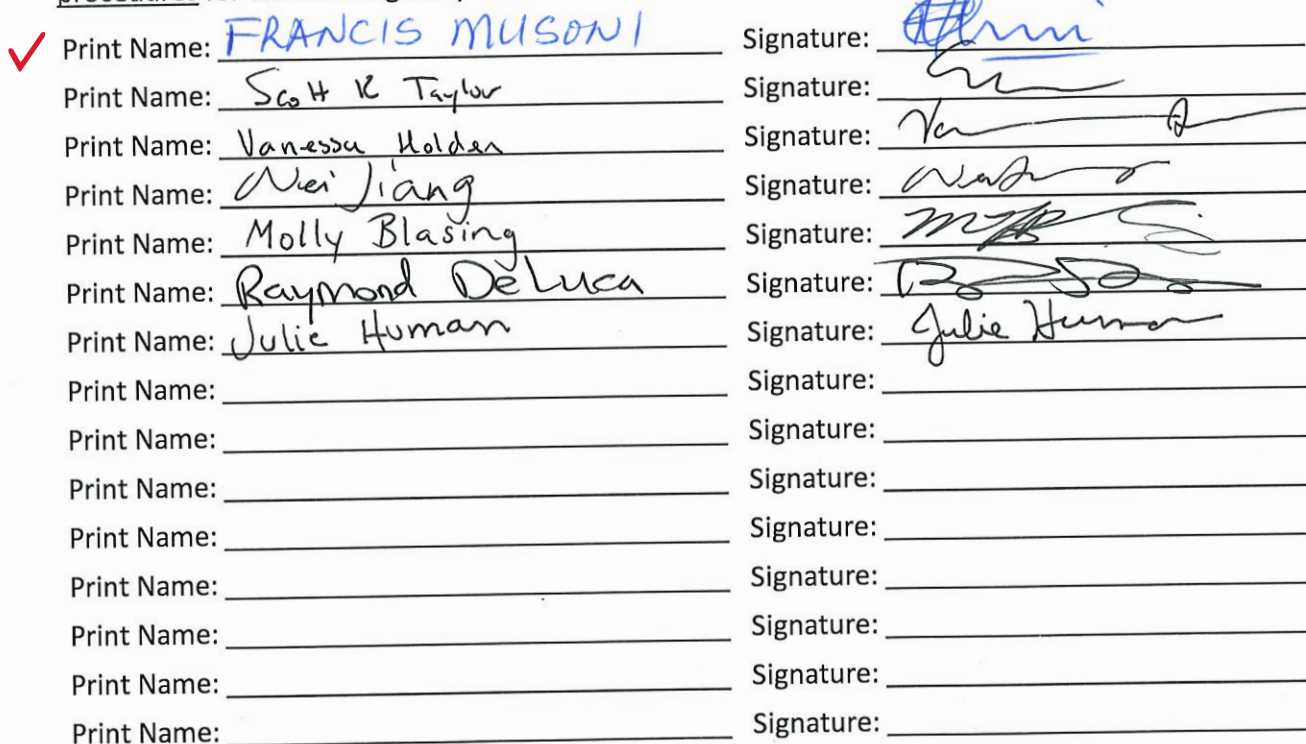 procedures
Print Name: FRANCIS MUSONI Signature:
Print Name: Scott K Taylor Signature:
Print Name: Vanessa Holden Signature:
Print Name: Wei Jiang Signature:
Print Name: Molly Blasing Signature:
Print Name: Raymond DeLuca Signature:
Print Name: Julie Human Signature: Julie Human
Print Name: Signature:
Print Name: Signature:
Print Name: Signature:
Print Name: Signature:
Print Name: Signature:
Print Name: Signature:
Print Name: Signature:
Print Name: Signature: